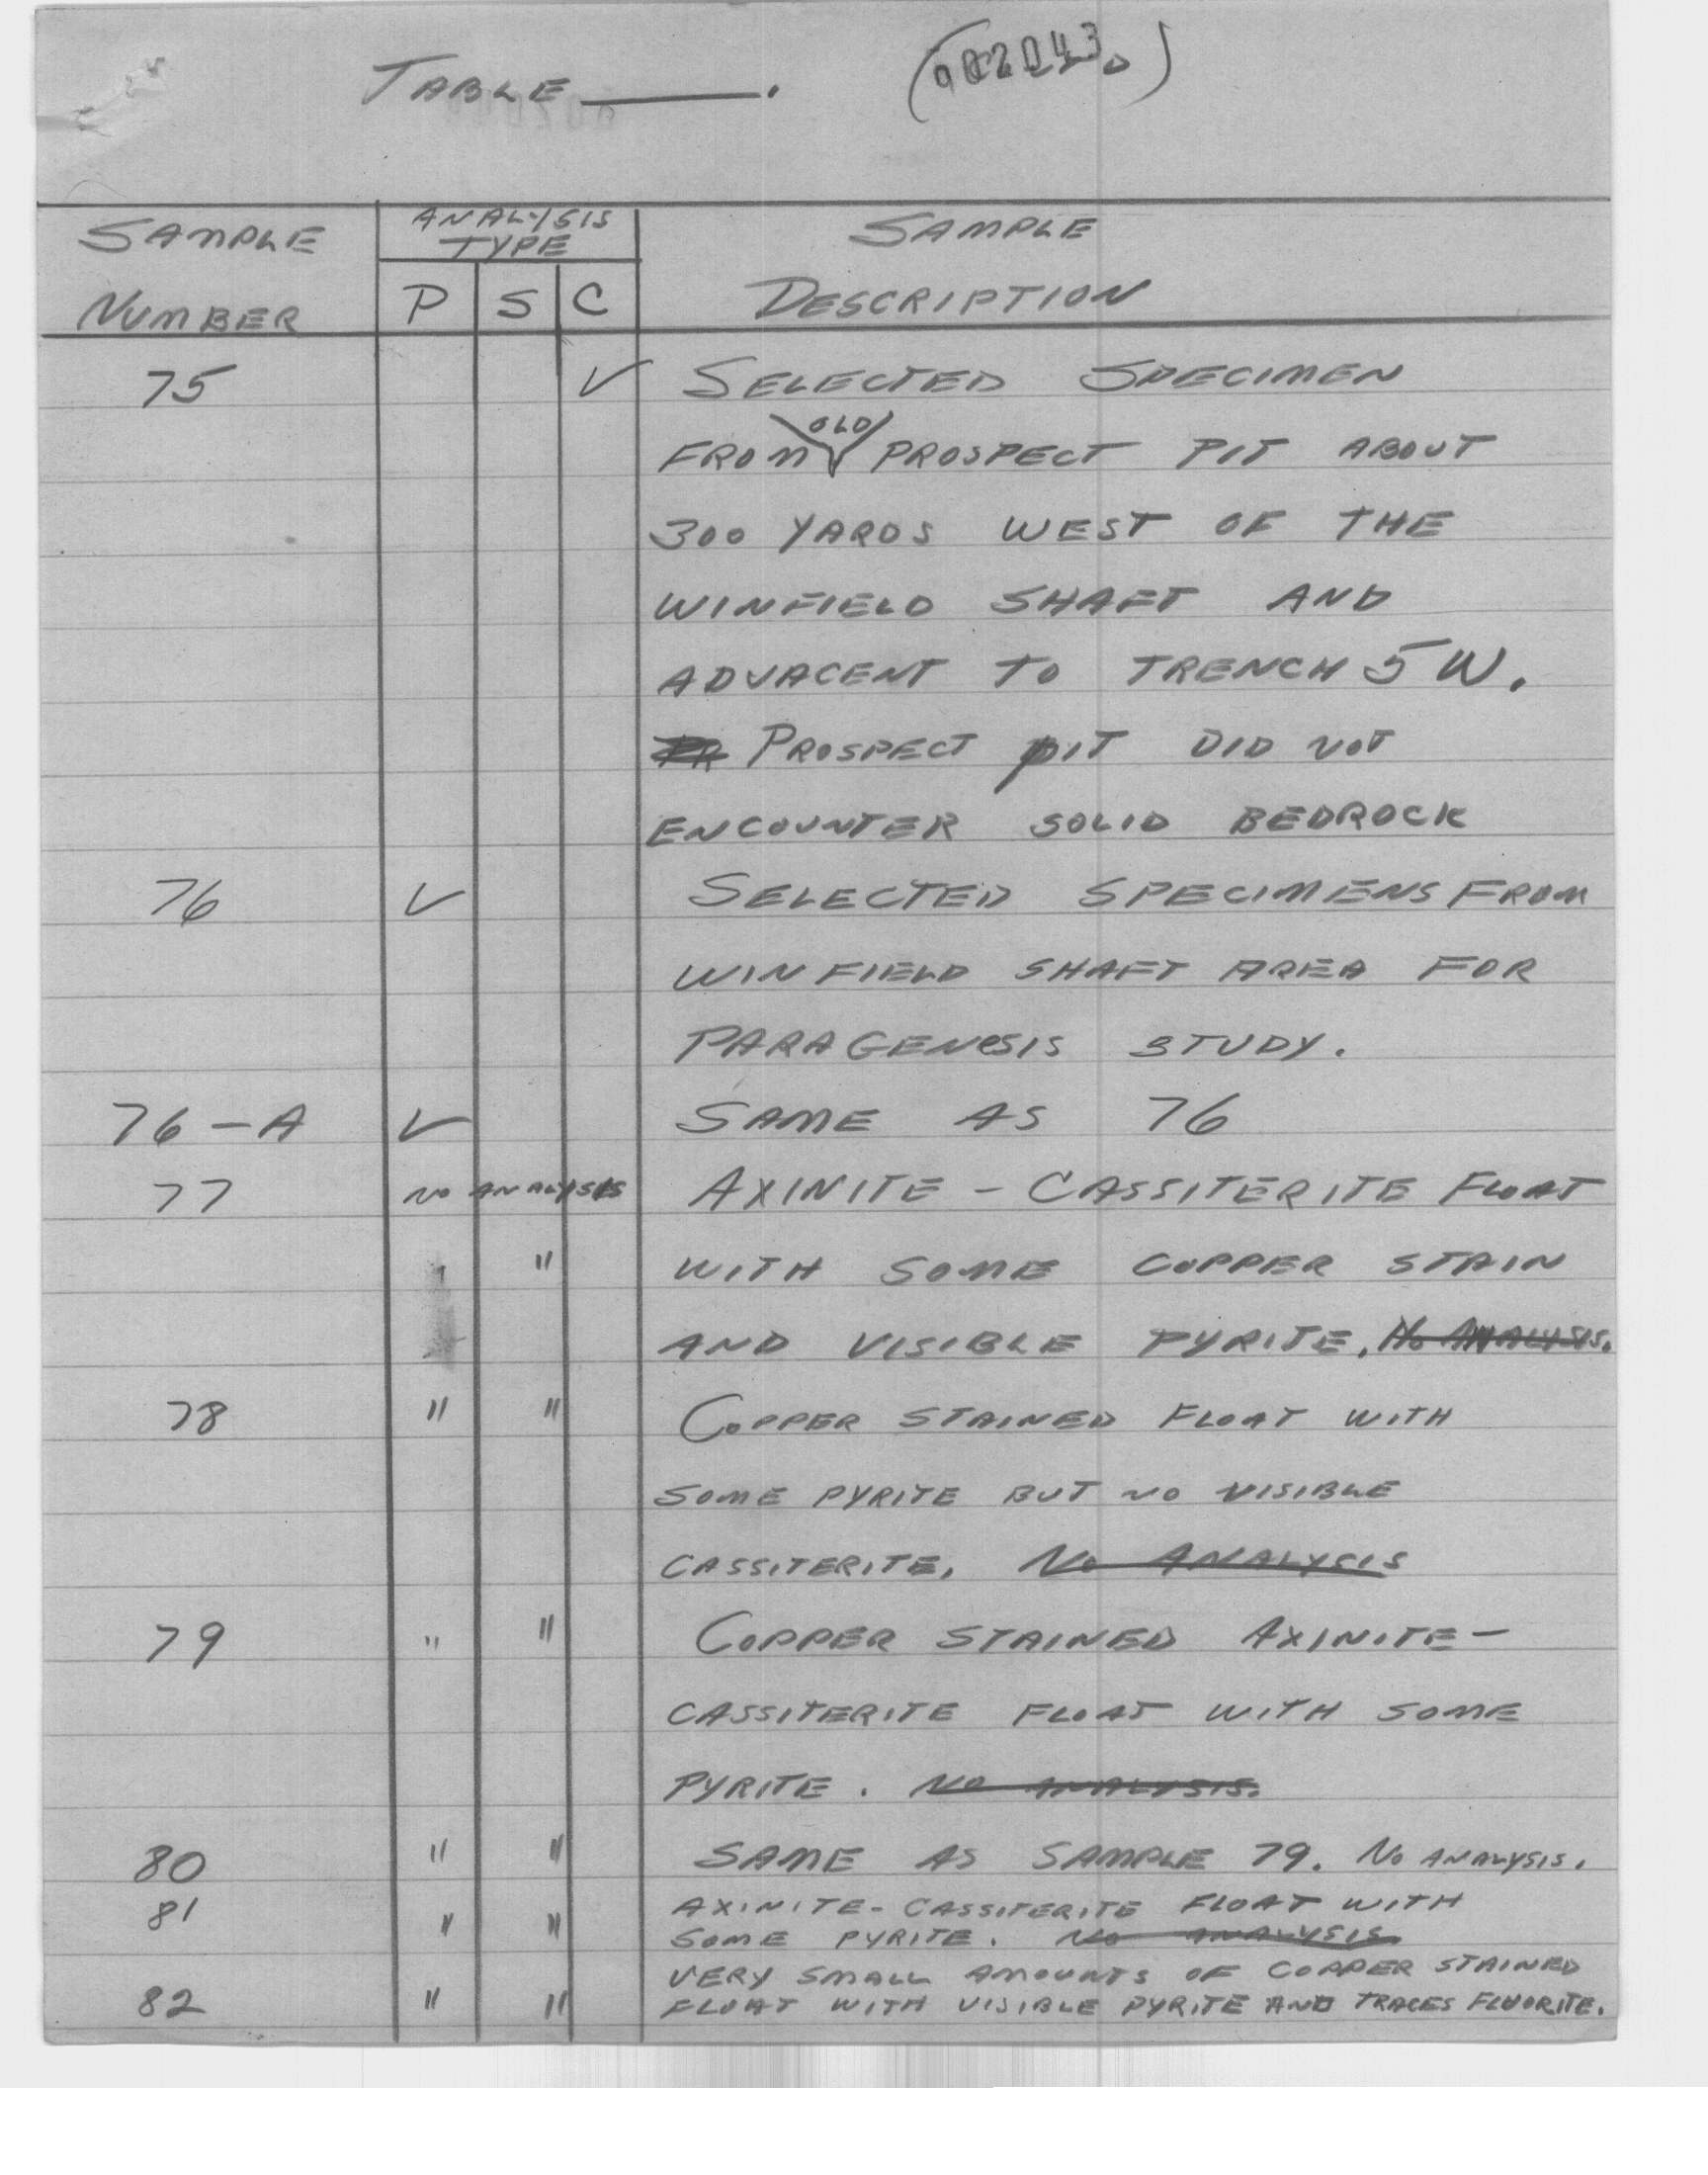 TABLE ____.
SAMPLE NUMBER
ANALYSIS TYPE
P S C
SAMPLE DESCRIPTION
75 ✓ SELECTED SPECIMEN
FROM OLD PROSPECT PIT ABOUT
300 YARDS WEST OF THE
WINFIELD SHAFT AND
ADJACENT TO TRENCH 5 W.
PR PROSPECT PIT DID NOT
ENCOUNTER SOLID BEDROCK
76 ✓ SELECTED SPECIMENS FROM
WINFIELD SHAFT AREA FOR
PARAGENESIS STUDY.
76-A ✓ SAME AS 76
77 NO ANALYSIS AXINITE - CASSITERITE FLOAT
" WITH SOME COPPER STAIN
AND VISIBLE PYRITE. NO ANALYSIS.
78 " " COPPER STAINED FLOAT WITH
SOME PYRITE BUT NO VISIBLE
CASSITERITE. NO ANALYSIS
79 " " COPPER STAINED AXINITE-
CASSITERITE FLOAT WITH SOME
PYRITE. NO ANALYSIS.
80 " " SAME AS SAMPLE 79. NO ANALYSIS.
81 " " AXINITE-CASSITERITE FLOAT WITH
SOME PYRITE. NO ANALYSIS.
VERY SMALL AMOUNTS OF COPPER STAINED
82 " " FLOAT WITH VISIBLE PYRITE AND TRACES FLUORITE.